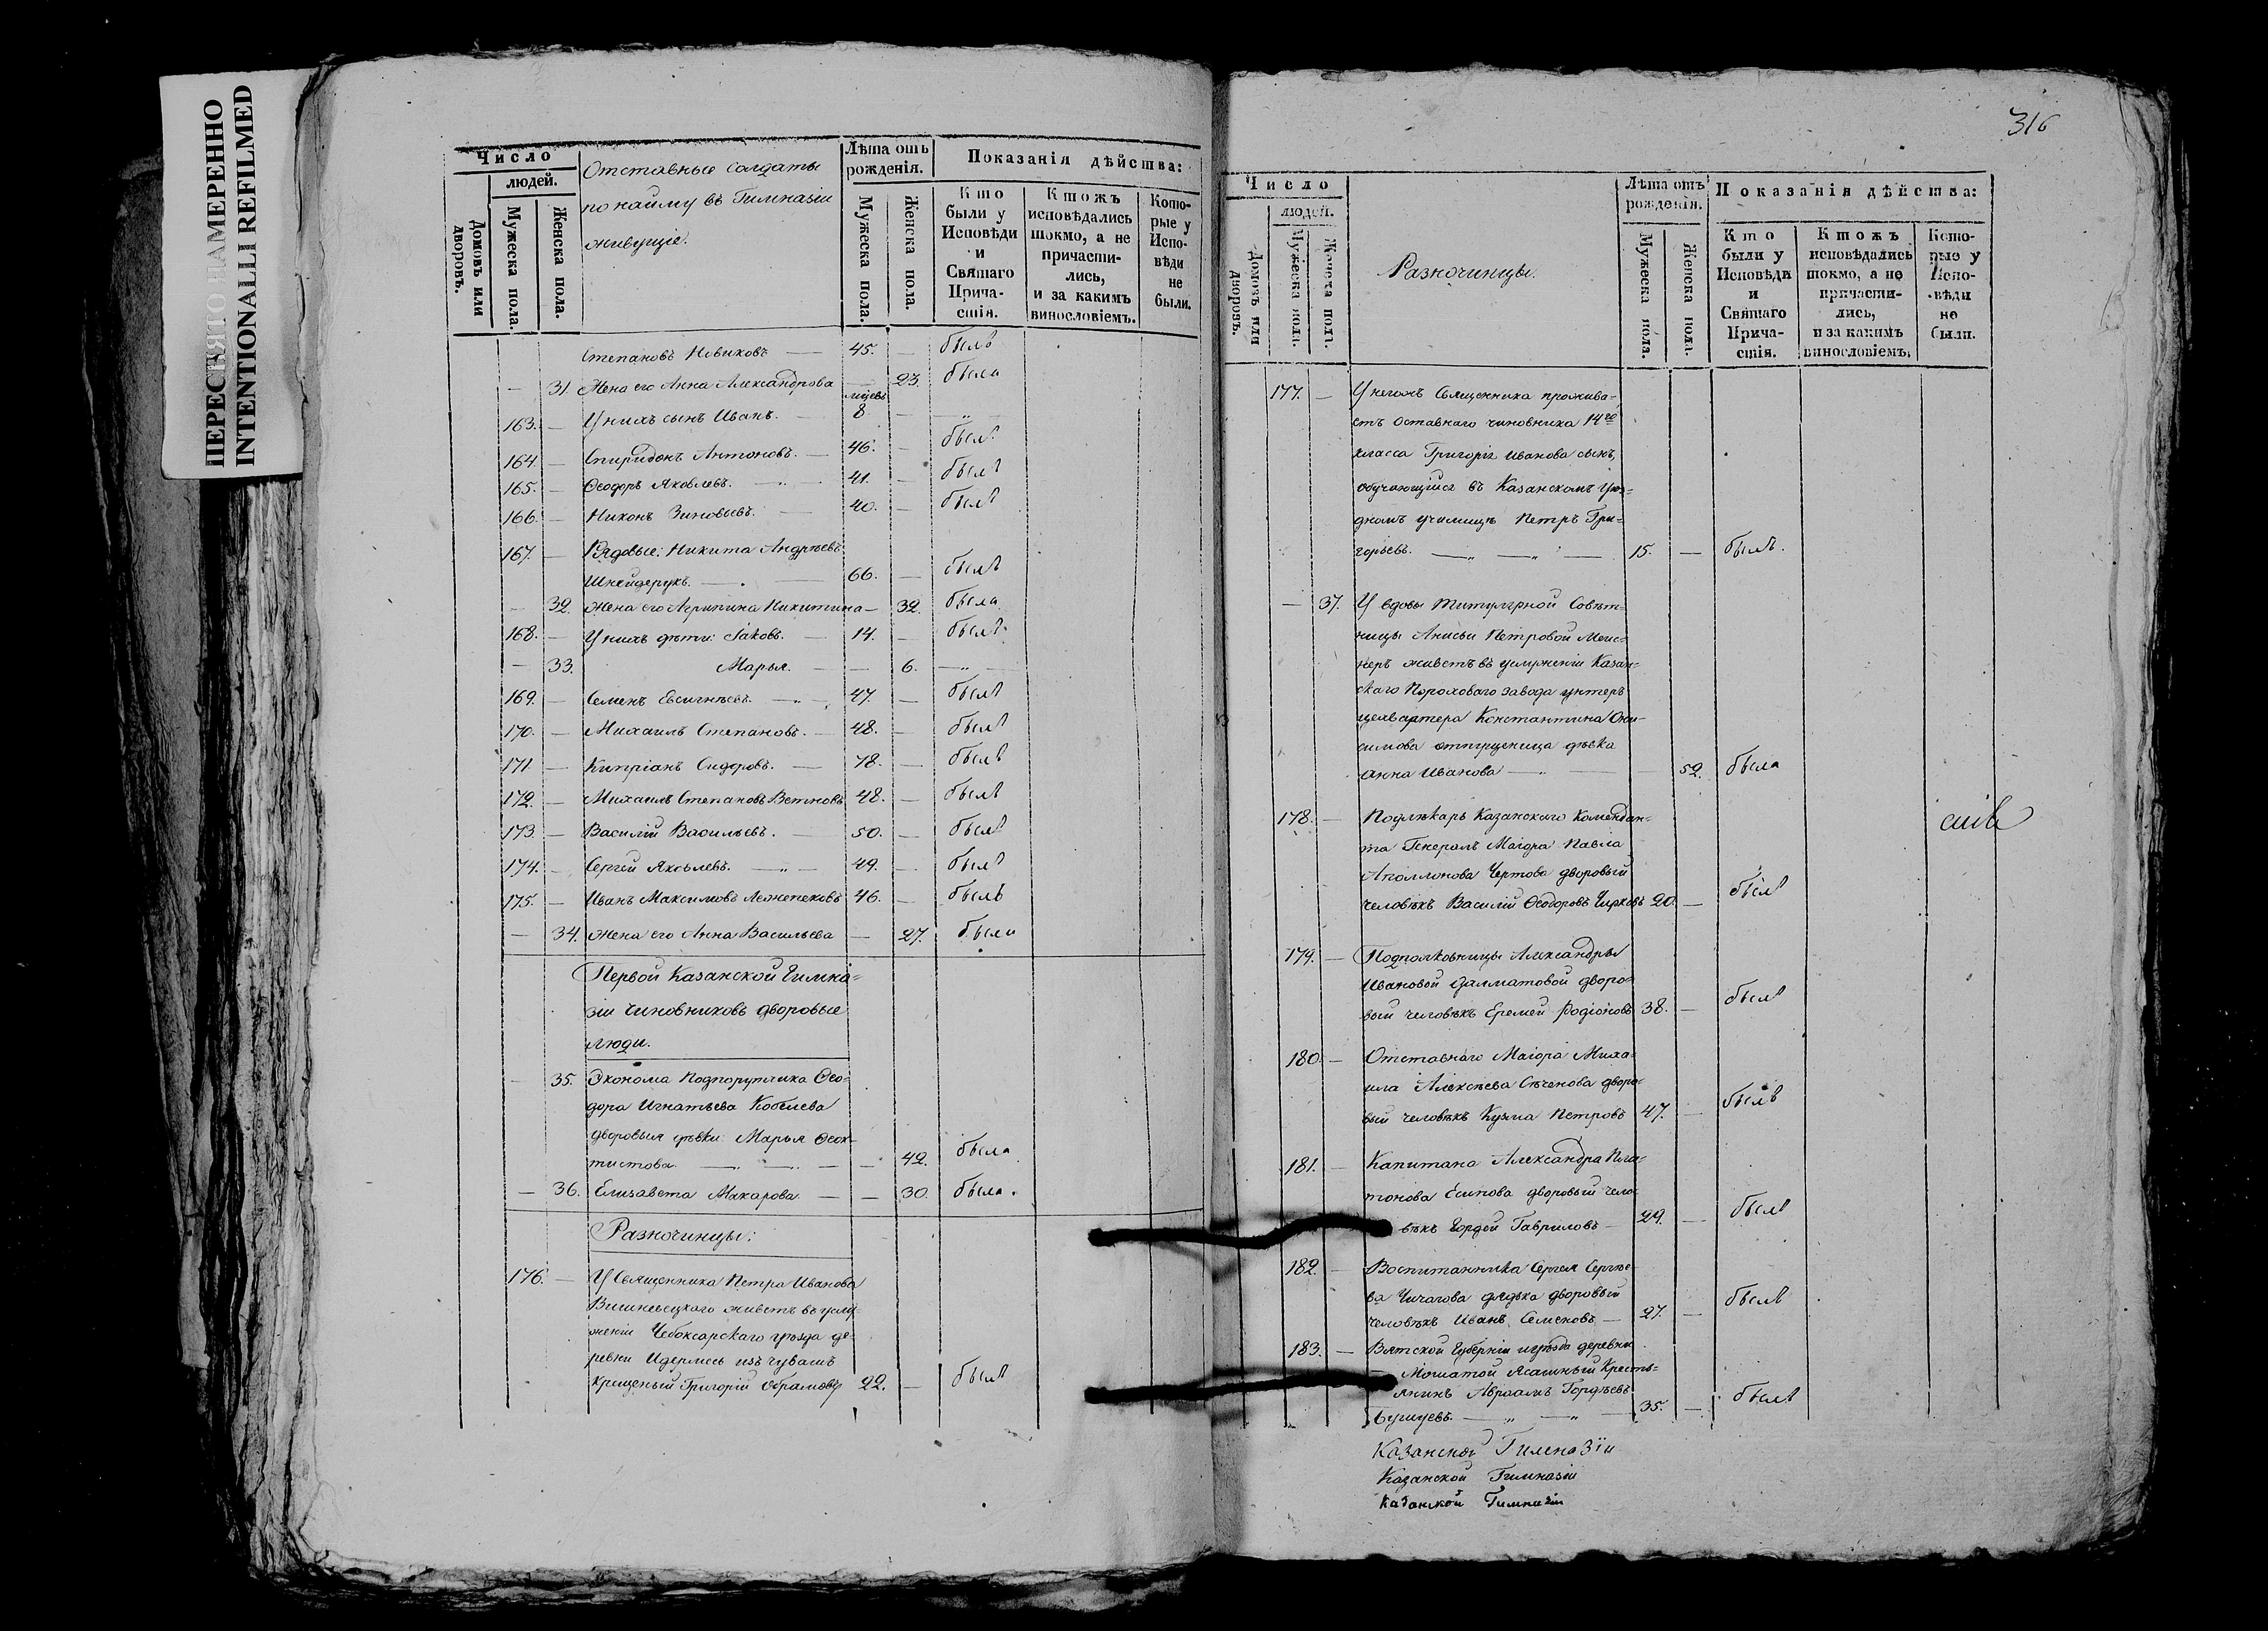 ПЕРЕСНЯТО НАМЕРЕННО
INTENTIONALLI REFILMED
Число
людей.
Домовъ или дворовъ.
Мужеска пола.
Женска пола.
Отставные солдаты
по найму въ Гимназіи
живущіе.
Лѣта отъ рожденія.
Мужеска пола.
Женска пола.
Показанія дѣйства:
Кто были у Исповѣди и Святаго Причастія.
Ктожъ исповѣдались токмо, а не причастились, и за какимъ винословіемъ.
Которые у Исповѣди не были.
Степановъ Новиковъ — 45. — былъ
— 31. Жена его Анна Александрова — 23. была
163. — У нихъ сынъ Иванъ. 8 — „
164. — Спиридонъ Антоновъ. — 46. — былъ
165. — Ѳеодоръ Яковлевъ. — 41. — былъ
166. — Никонъ Зиновьевъ. — 40. — былъ
167. — Рядовые: Никита Андрѣевъ
66. — былъ
— 32. жена его Агрипина Никитина — 32. была
168. — У нихъ дѣти: Іаковъ. — 14. — былъ
— 33. Марья. — — 6. — „
169. — Семенъ Евсигнѣевъ. — 47. — былъ
170. — Михаилъ Степановъ. — 48. — былъ
171 — Кипріанъ Сидоровъ. — 78. — былъ
172. — Михаилъ Степановъ 48. — былъ
173. — Василій Васильевъ. — 50. — былъ
174. — Сергей Яковлевъ. — „ — 49. — былъ
175. — Иванъ Максимовъ 46. — былъ
— 34. жена его Анна Васильева — 27. была
Первой Казанской Гимна-
зіи чиновниковъ дворовые
люди.
— 35. Эконома Подпоручика Ѳео-
дора Игнатьева Кобелева
дворовыя дѣвки: Марья Ѳеок-
тистова — — 42. была
— 36. Елизавета Макарова — — 30. была.
Разночинцы:
176. — У Священника Петра Иванова
Вишневецкаго живетъ въ услу-
женіи Чебоксарскаго уѣзда де-
ревни из чувашъ
крещеный Григорій 22. — былъ
316
Число
людей.
Домовъ или дворовъ.
Мужеска пола.
Женска пола.
Разночинцы.
Лѣта отъ рожденія.
Мужеска пола.
Женска пола.
Показанія дѣйства:
Кто были у Исповѣди и Святаго Причастія.
Ктожъ исповѣдались токмо, а не причастились, и за какимъ винословіемъ.
Которые у Исповѣди не были.
177. — У негожъ Священника прожива-
етъ Оставнаго чиновника 14го
класса Григорія Иванова сынъ,
обучающійся въ Казанскомъ уѣз-
дномъ училищѣ Петръ Гри-
горьевъ. — „ — „ — 15. — былъ.
— 37. У вдовы Титулярной Совѣт-
ницы Анисьи Петровой Мейс-
неръ живетъ въ услуженіи Казан-
скаго Пороховаго завода унтеръ
цейхвартера Константина Они-
симова отпущеница дѣвка
Анна Иванова — — 52. была
178. — Подлѣкарь Казанскаго Комендан-
та Генералъ Маіора Павла
Аполлонова Чертова дворовый
человѣкъ Василій Ѳеодоровъ Чирковъ 20. — былъ
179. — Подполковницы Александры
Ивановой Далматовой дворо-
вый человѣкъ Еремей Родіоновъ 38. — былъ
180. — Отставнаго Маіора Миха-
ила Алексѣева Сѣченова дворо-
вый человѣкъ Кузма Петровъ 47. — былъ
181. — Капитана Александра Пла-
тонова Есипова дворовый чело-
вѣкъ Гордей Гавриловъ — 29. — былъ
182. — Воспитанника Сергея Сергѣе-
ва Чичагова дядька дворовый
человѣкъ Иванъ Семеновъ — 27. — былъ
183. — Вятской Губерніи уѣзда деревни
Ясашный Кресть-
янинъ Авраамъ Гордѣевъ
— „ — „ — 35. — былъ
Казанской Гимназїи
Казанской Гимназіи
Казанской Гимназіи